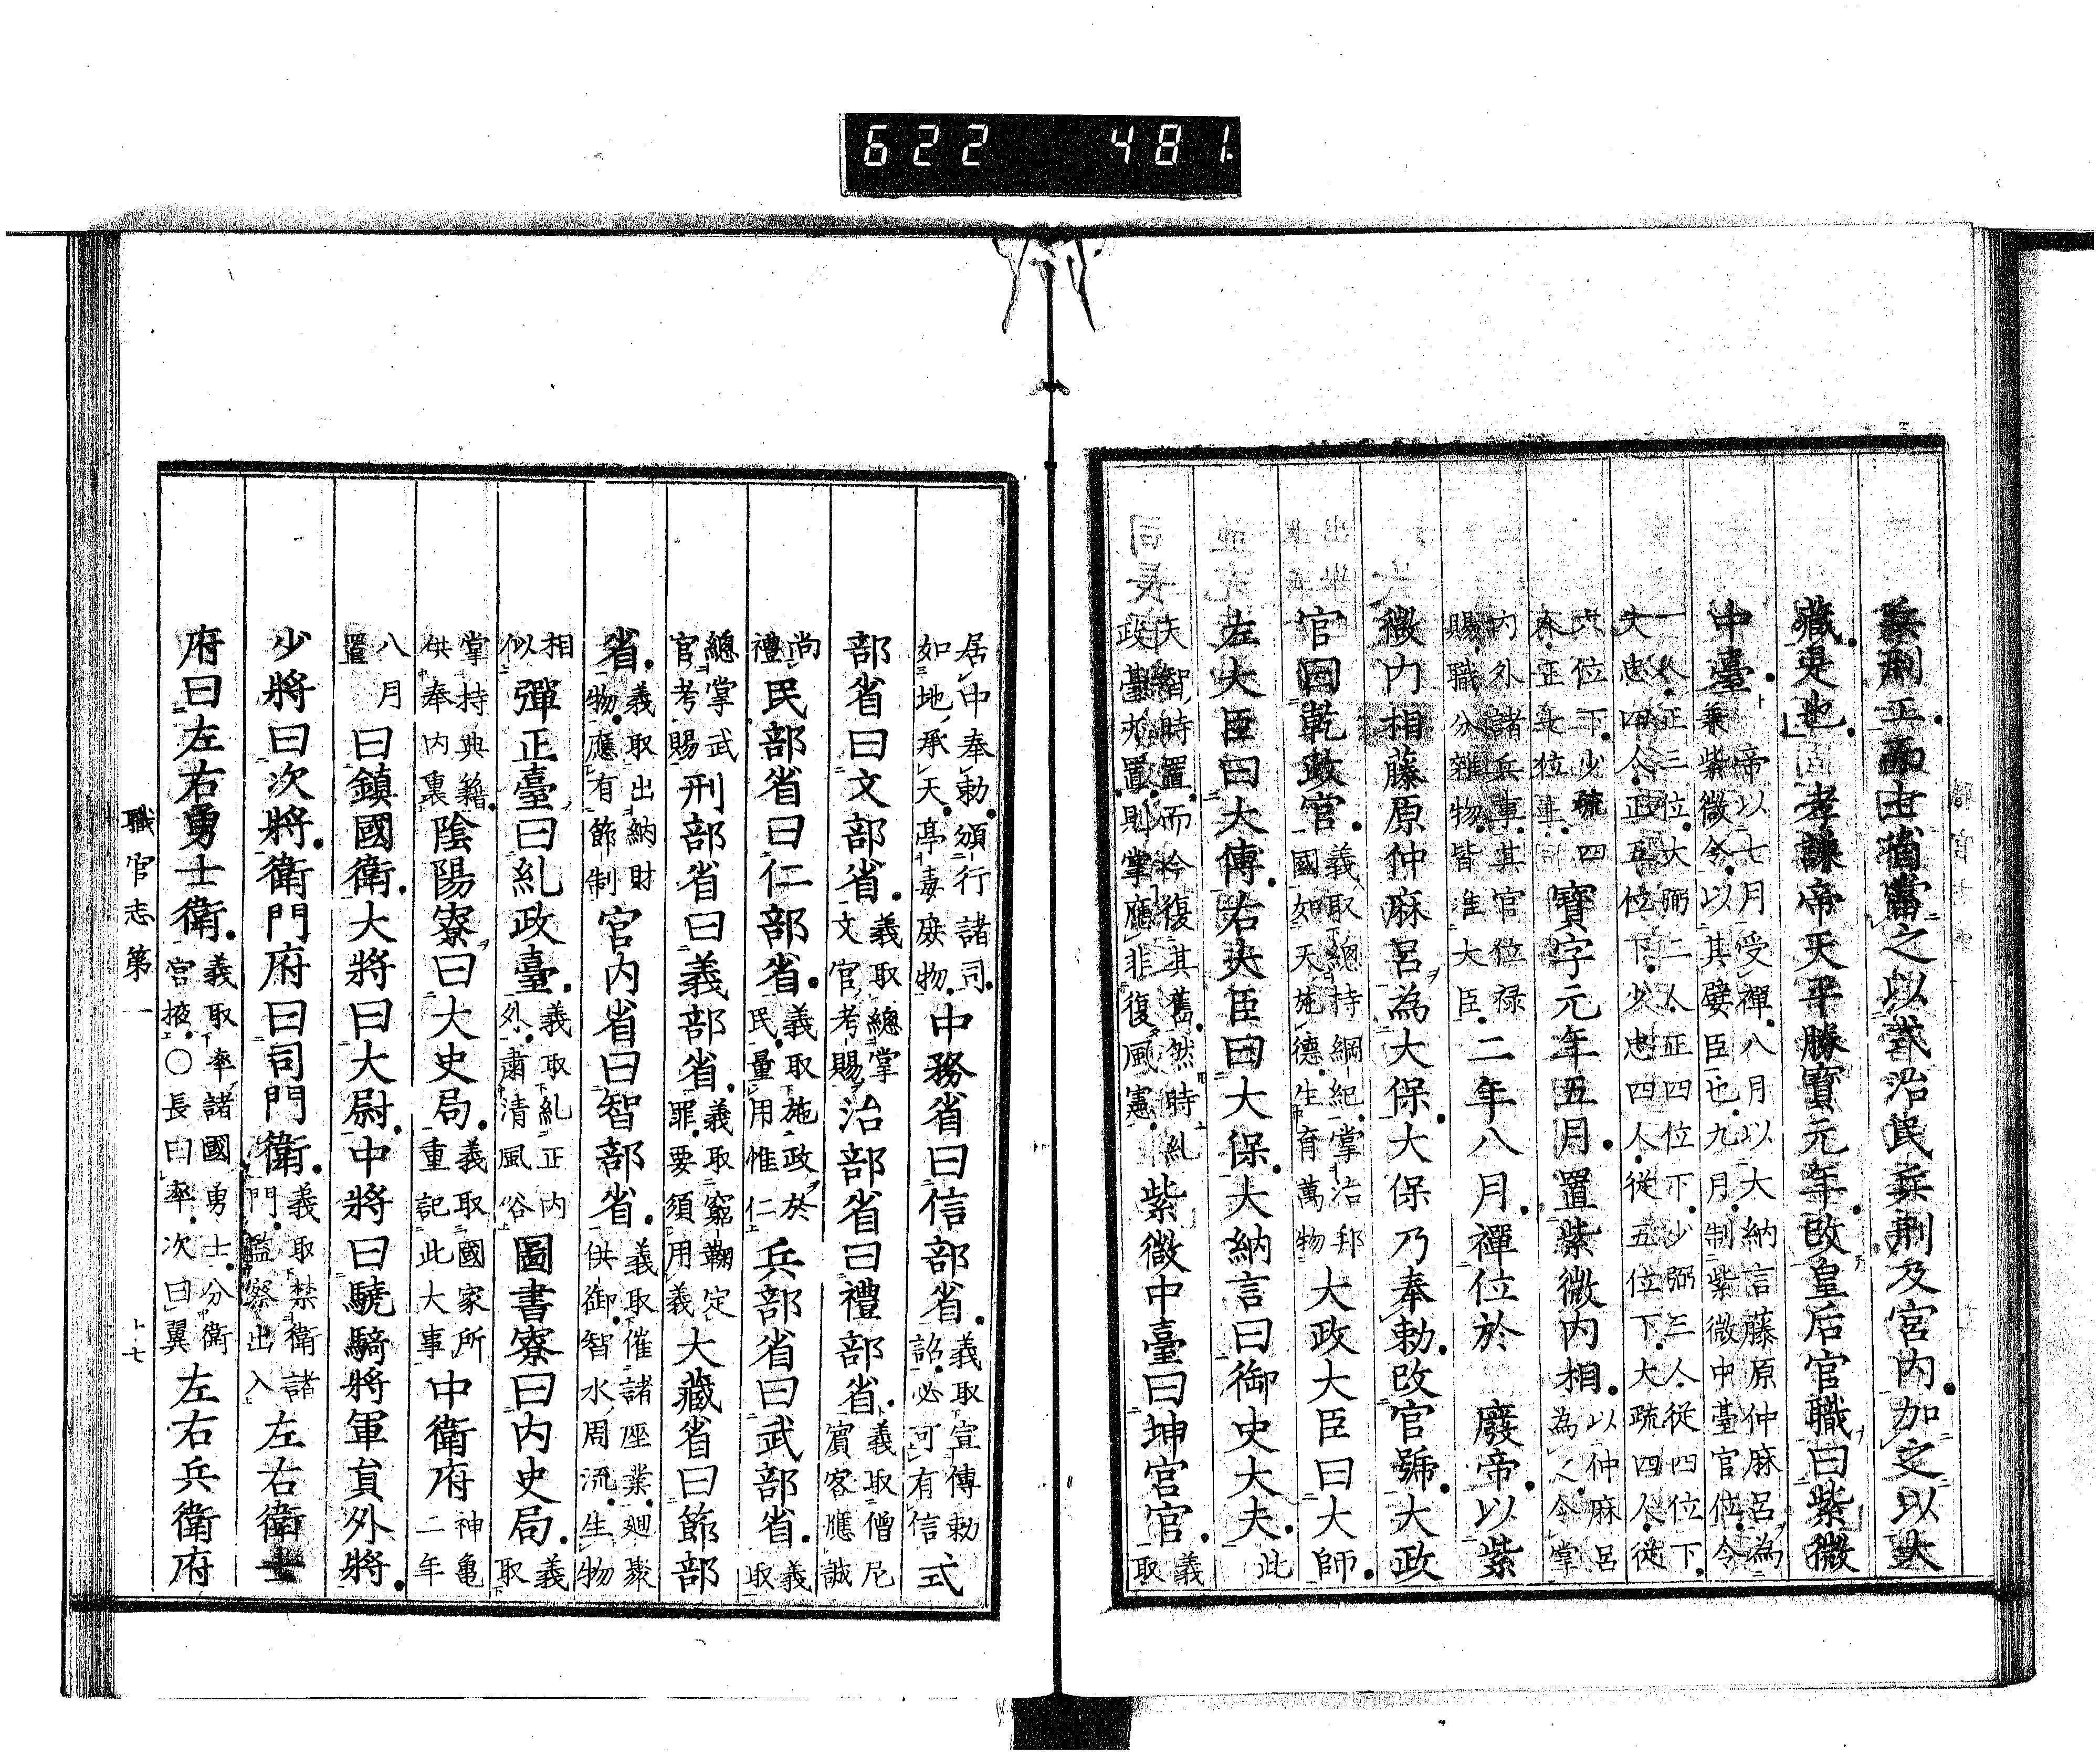 622 481.
兵刑工而士當之以式治民兵刑及宮内加之以大
藏是也孝謙帝天平勝寶元年改皇后官職曰紫微
中臺帝以七月受禪八月以大納言藤原仲麻呂為
兼紫微令以其嬖臣也九月制紫微中臺官位令
一人正三位大弼二人正四位下少弼三人從四位下
大忠四人正五位下少忠四人從五位下大疏四人從
六位下少疏四
人正七位上寶字元年五月置紫微内相以仲麻呂
為之令掌
内外諸兵事其官位禄
賜職分雜物皆准大臣二年八月禪位於 廢帝以紫
微内相藤原仲麻呂為大保大保乃奉勅改官號大政
官曰乾政官義取總持綱紀掌治邦
國如天施德生育萬物大政大臣曰大師
左大臣曰大傅右大臣曰大保大納言曰御史大夫此
夫智時置而衿復其舊然時糺
政臺亦置則掌應非復風憲紫微中臺曰坤宮官義
取
居中奉勅頒行諸司
如地承天亭毒庶物中務省曰信部省義取宣傳勅
詔必可有信式
部省曰文部省義取總掌
文官考賜治部省曰禮部省義取僧尼
賓客應誠
尚
禮民部省曰仁部省義取施政於
民量用惟仁兵部省曰武部省義
取
總掌武
官考賜刑部省曰義部省義取窮鞫定
罪要須用義大藏省曰節部
省義取出納財
物應有節制宮内省曰智部省義取催諸座業廻聚
供御智水周流生物
相
似彈正臺曰糺政臺義取糺正内
外肅清風俗圖書寮曰内史局義
取
掌持典籍
供奉内裏陰陽寮曰大史局義取國家所
重記此大事中衛府神龜
二年
八月
置曰鎮國衛大將曰大尉中將曰驍騎將軍員外將
少將曰次將衛門府曰司門衛義取禁衛諸
門監察出入左右衛士
府曰左右勇士衛義取率諸國勇士分衛
宮掖〇長曰率次曰翼左右兵衛府
職官志第一 十七